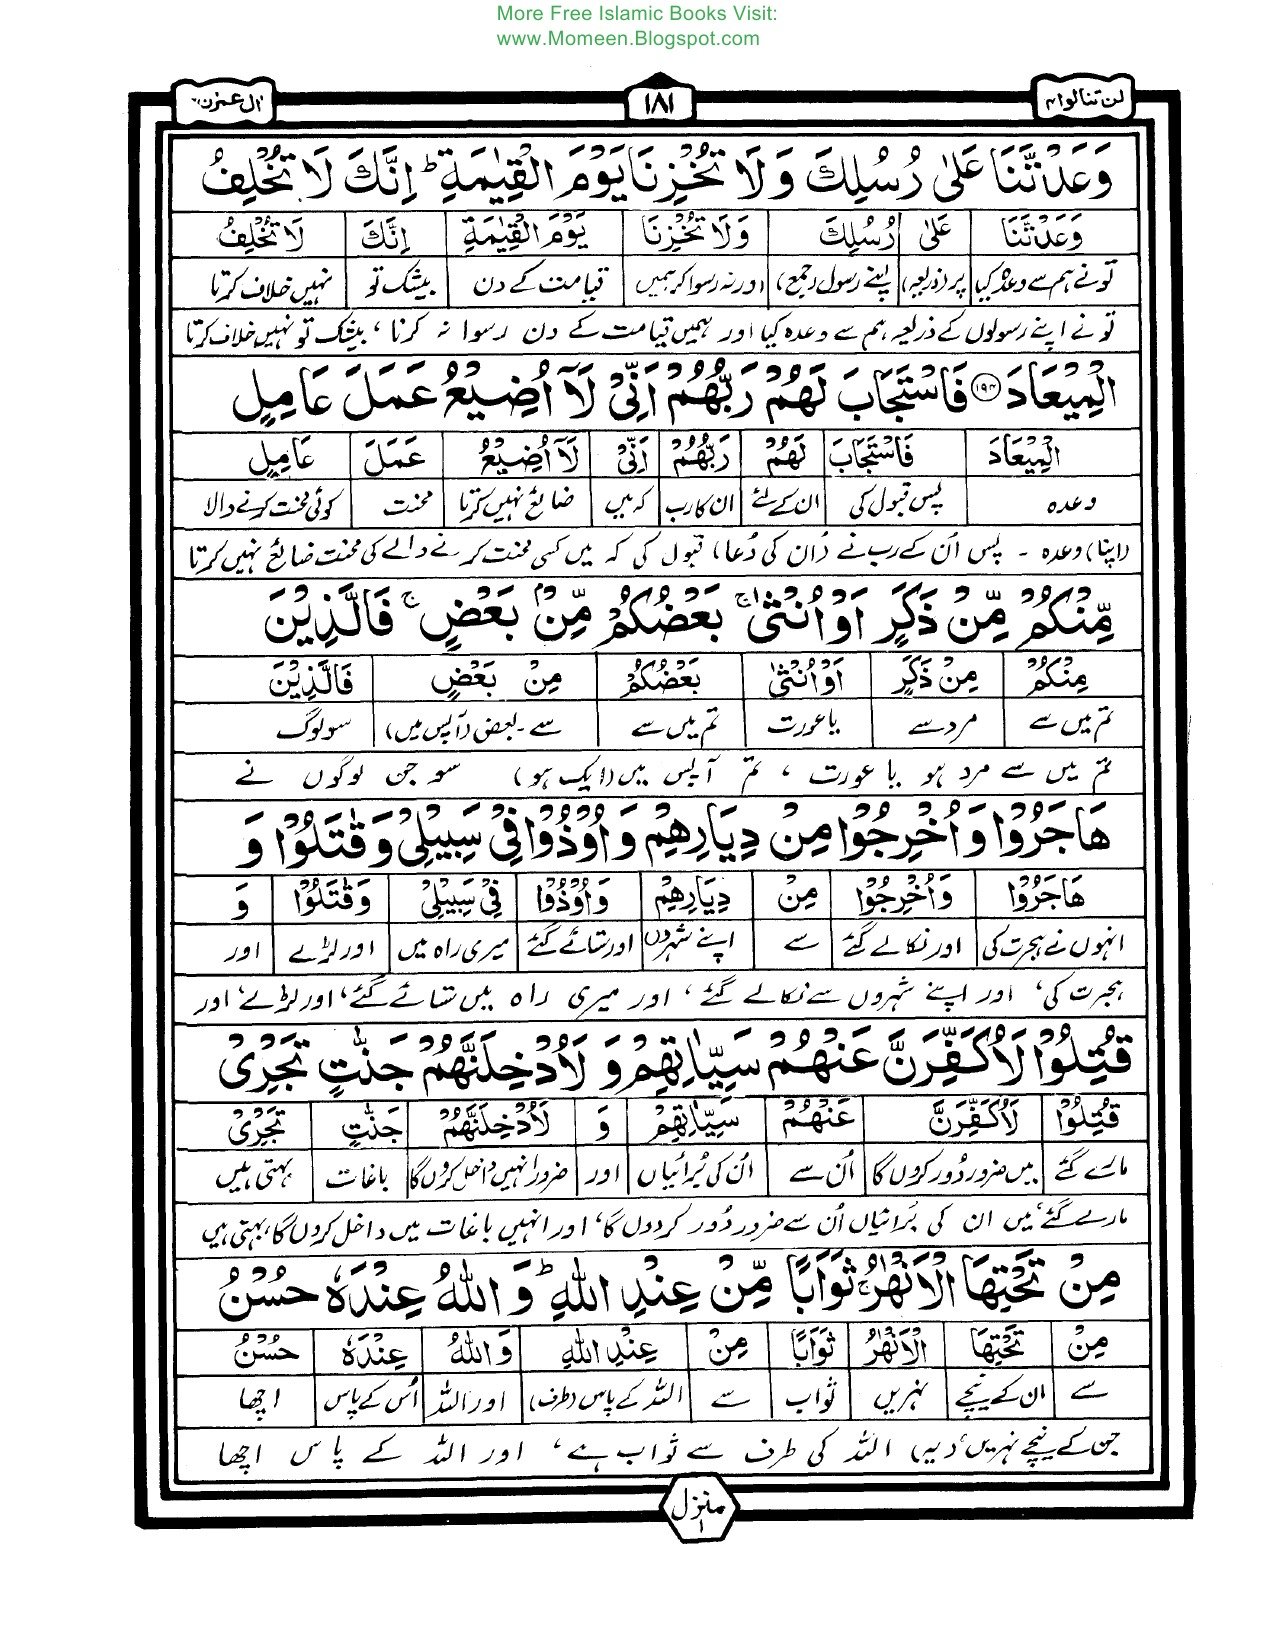 More Free Islamic Books Visit:
www.Momeen.Blogspot.com
لن تنالوا ۴ ۱۸۱ اٰل عمرٰن ۳
وَعَدْتَّنَا عَلٰى رُسُلِكَ وَلَا تُخْزِنَا يَوْمَ الْقِيٰمَةِ ؕ اِنَّكَ لَا تُخْلِفُ
وَعَدْتَّنَا عَلٰى رُسُلِكَ وَلَا تُخْزِنَا يَوْمَ الْقِيٰمَةِ اِنَّكَ لَا تُخْلِفُ
تونے ہم سے وعدہ کیا پر (ذریعہ) اپنے رسول (جمع) اور نہ رسوا کر ہمیں قیامت کے دن بیشک تو نہیں خلاف کرتا
تو نے اپنے رسولوں کے ذریعہ ہم سے وعدہ کیا اور ہمیں قیامت کے دن رسوا نہ کرنا، بیشک تو نہیں خلاف کرتا
الْمِيْعَادَ ۱۹۴ فَاسْتَجَابَ لَهُمْ رَبُّهُمْ اَنِّىْ لَاۤ اُضِيْعُ عَمَلَ عَامِلٍ
الْمِيْعَادَ فَاسْتَجَابَ لَهُمْ رَبُّهُمْ اَنِّىْ لَاۤ اُضِيْعُ عَمَلَ عَامِلٍ
وعدہ پس قبول کی ان کے لئے ان کا رب کہ میں ضائع نہیں کرتا محنت کوئی محنت کرنے والا
(اپنا) وعدہ ۔ پس اُن کے رب نے (اُن کی دُعا) قبول کی کہ میں کسی محنت کرنے والے کی محنت ضائع نہیں کرتا
مِّنْكُمْ مِّنْ ذَكَرٍ اَوْ اُنْثٰى ۚ بَعْضُكُمْ مِّنْۢ بَعْضٍ ۚ فَالَّذِيْنَ
مِنْكُمْ مِنْ ذَكَرٍ اَوْ اُنْثٰى بَعْضُكُمْ مِنْ بَعْضٍ فَالَّذِيْنَ
تم میں سے مرد سے یا عورت تم میں سے سے ۔ بعض (آپس میں) سو لوگ
تم میں سے مرد ہو یا عورت ، تم آپس میں (ایک ہو) سو جن لوگوں نے
هَاجَرُوْا وَاُخْرِجُوْا مِنْ دِيَارِهِمْ وَاُوْذُوْا فِىْ سَبِيْلِىْ وَقٰتَلُوْا وَ
هَاجَرُوْا وَاُخْرِجُوْا مِنْ دِيَارِهِمْ وَاُوْذُوْا فِىْ سَبِيْلِىْ وَقٰتَلُوْا وَ
انہوں نے ہجرت کی اور نکالے گئے سے اپنے شہروں اور ستائے گئے میری راہ میں اور لڑے اور
ہجرت کی، اور اپنے شہروں سے نکالے گئے، اور میری راہ میں ستائے گئے، اور لڑے، اور
قُتِلُوْا لَاُكَفِّرَنَّ عَنْهُمْ سَيِّاٰتِهِمْ وَ لَاُدْخِلَنَّهُمْ جَنّٰتٍ تَجْرِىْ
قُتِلُوْا لَاُكَفِّرَنَّ عَنْهُمْ سَيِّاٰتِهِمْ وَ لَاُدْخِلَنَّهُمْ جَنّٰتٍ تَجْرِىْ
مارے گئے میں ضرور دُور کروں گا اُن سے اُن کی بُرائیاں اور ضرور انہیں داخل کروں گا باغات بہتی ہیں
مارے گئے، میں ان کی بُرائیاں اُن سے ضرور دُور کردوں گا، اور انہیں باغات میں داخل کروں گا، بہتی ہیں
مِنْ تَحْتِهَا الْاَنْهٰرُ ۚ ثَوَابًا مِّنْ عِنْدِ اللّٰهِ ؕ وَ اللّٰهُ عِنْدَهٗ حُسْنُ
مِنْ تَحْتِهَا الْاَنْهٰرُ ثَوَابًا مِنْ عِنْدِ اللّٰهِ وَ اللّٰهُ عِنْدَهٗ حُسْنُ
سے ان کے نیچے نہریں ثواب سے اللہ کے پاس (طرف) اور اللہ اُس کے پاس اچھا
جن کے نیچے نہریں، (یہ) اللہ کی طرف سے ثواب ہے، اور اللہ کے پاس اچھا
منزل ۱